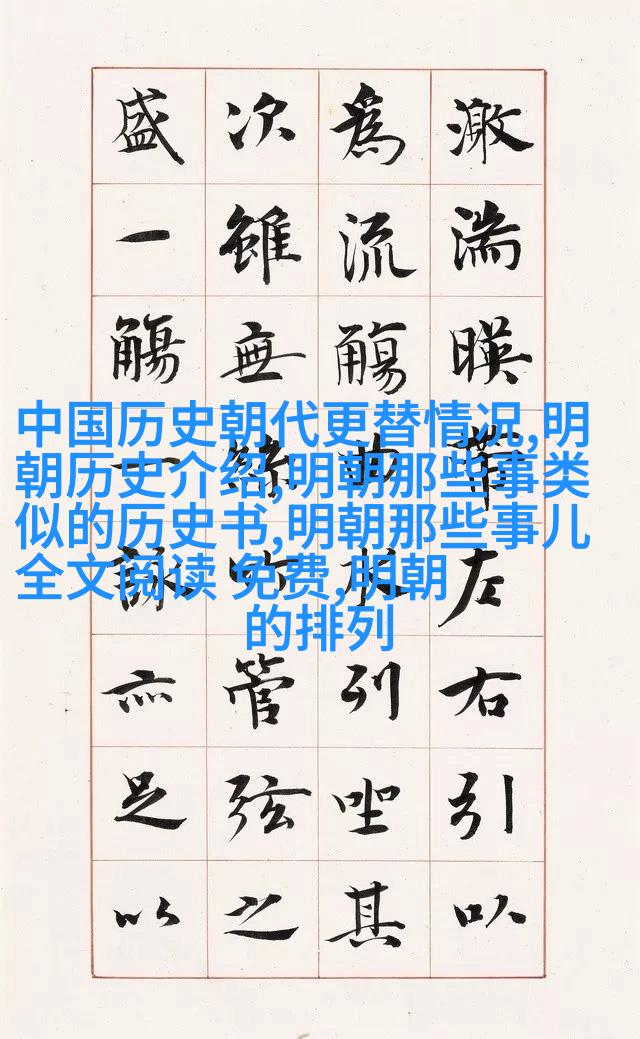 激湍暎帶左右引以
爲流觴曲水列坐其
次雖無絲竹管弦之
盛一觴一詠亦足以
中国历史朝代更替情况,明
朝历史介绍,明朝那些事类
似的历史书,明朝那些事儿
全文阅读 免费,明朝
的排列